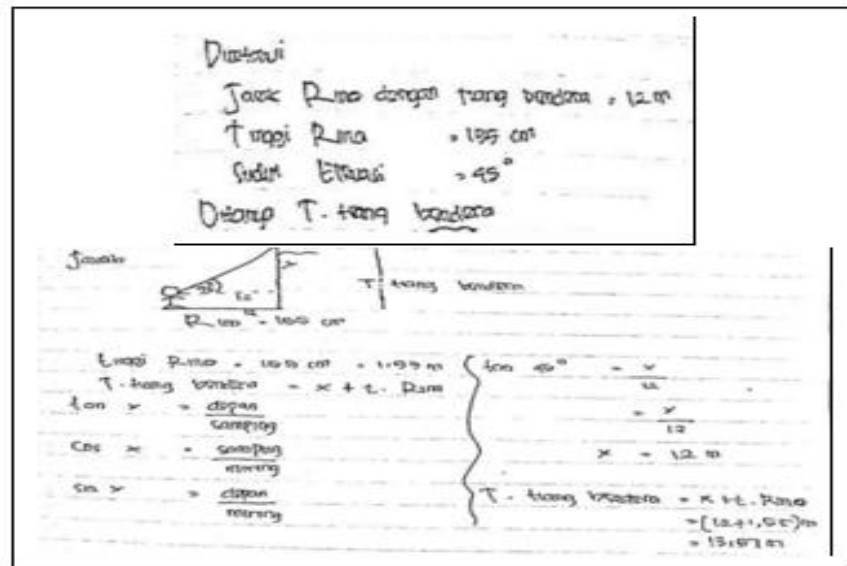 Diketahui
Jarak Rino dengan tiang bendera = 12 m
Tinggi Rino = 155 cm
Sudut Elevasi = 45°
Ditanya T. tiang bendera
Jawab
45°
12
x
T. tiang bendera
Rino = 155 cm
tinggi Rino = 155 cm = 1.55 m
T. tiang bendera = x + t. Rino
tan x = depan
samping
cos x = samping
miring
sin x = depan
miring
tan 45° = x
12
= x
12
x = 12 m
T. tiang bendera = x + t. Rino
= (12 + 1,55) m
= 13,55 m